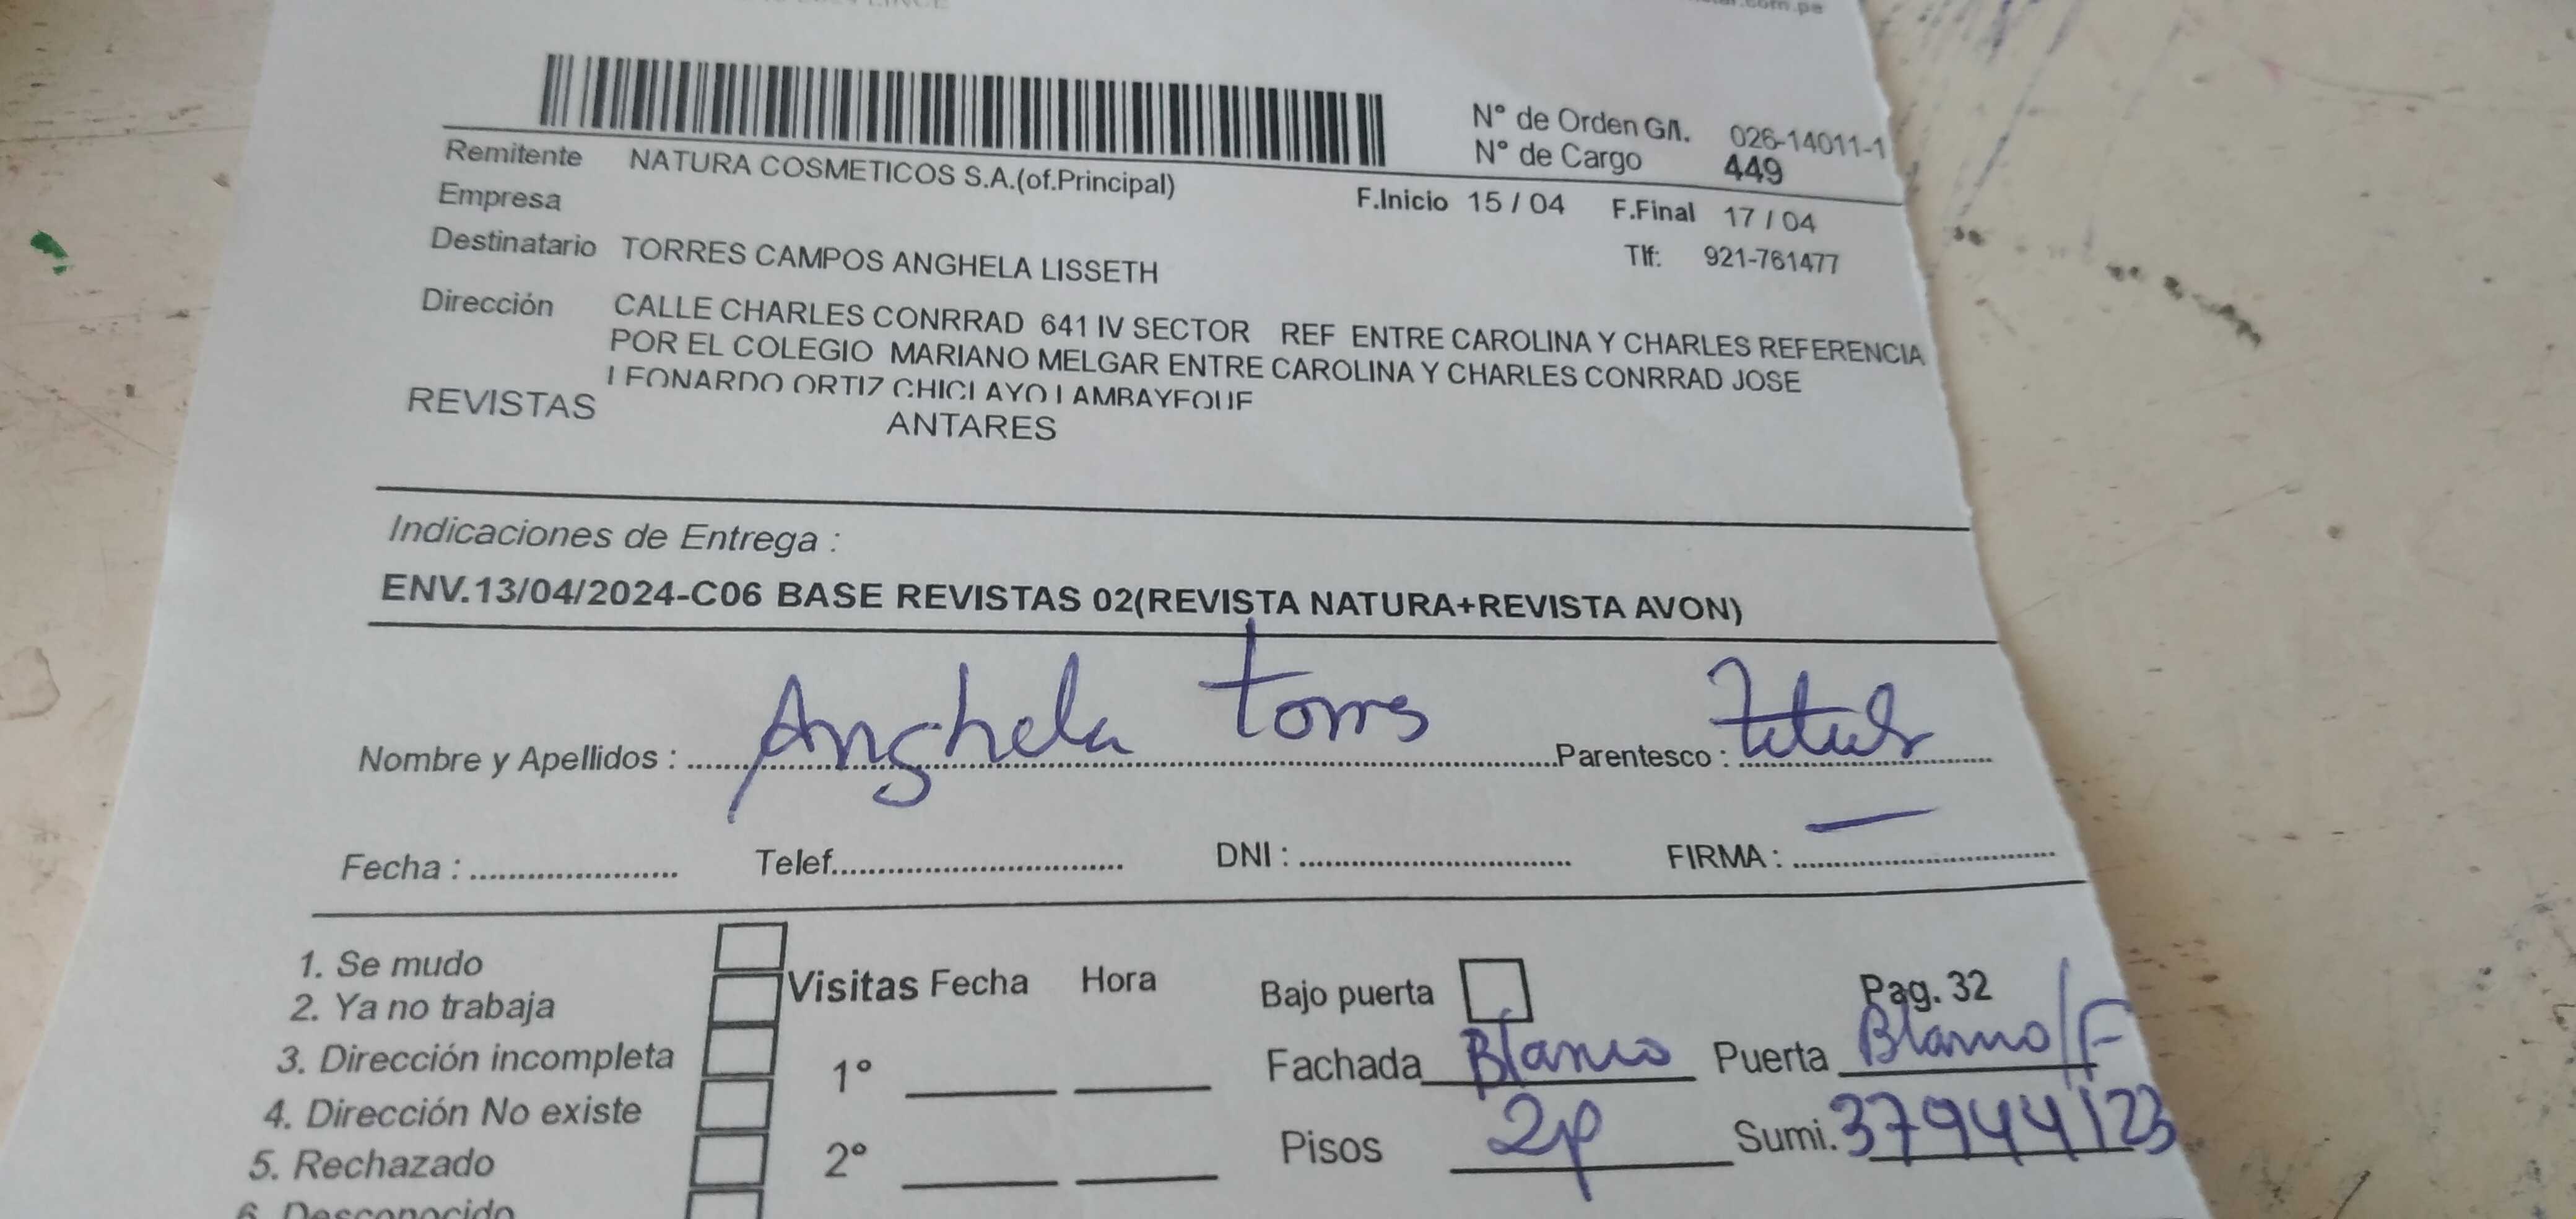 .com.pe
N° de Orden G/I. 026-14011-1
N° de Cargo 449
Remitente NATURA COSMETICOS S.A.(of.Principal)
Empresa
F.Inicio 15 / 04 F.Final 17 / 04
Destinatario TORRES CAMPOS ANGHELA LISSETH
Tlf: 921-761477
Dirección CALLE CHARLES CONRRAD 641 IV SECTOR REF ENTRE CAROLINA Y CHARLES REFERENCIA
POR EL COLEGIO MARIANO MELGAR ENTRE CAROLINA Y CHARLES CONRRAD JOSE
LEONARDO ORTIZ CHICLAYO LAMBAYEQUE
REVISTAS ANTARES
Indicaciones de Entrega :
ENV.13/04/2024-C06 BASE REVISTAS 02(REVISTA NATURA+REVISTA AVON)
Nombre y Apellidos : Anghela Torres Parentesco :
Fecha : Telef. DNI : FIRMA :
1. Se mudo
2. Ya no trabaja
3. Dirección incompleta
4. Dirección No existe
5. Rechazado
6. Desconocido
Visitas Fecha Hora
1°
2°
Bajo puerta Pag. 32
Fachada Blanco Puerta Blanco/F
Pisos 2p Sumi. 37944123